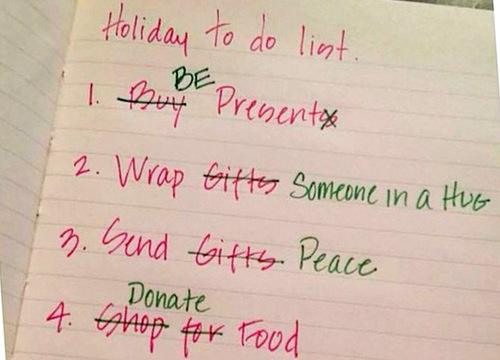 Holiday to do list.
1. Buy BE Presents
2. Wrap Gifts Someone in a HUG
3. Send Gifts Peace
Donate
4. Shop for Food